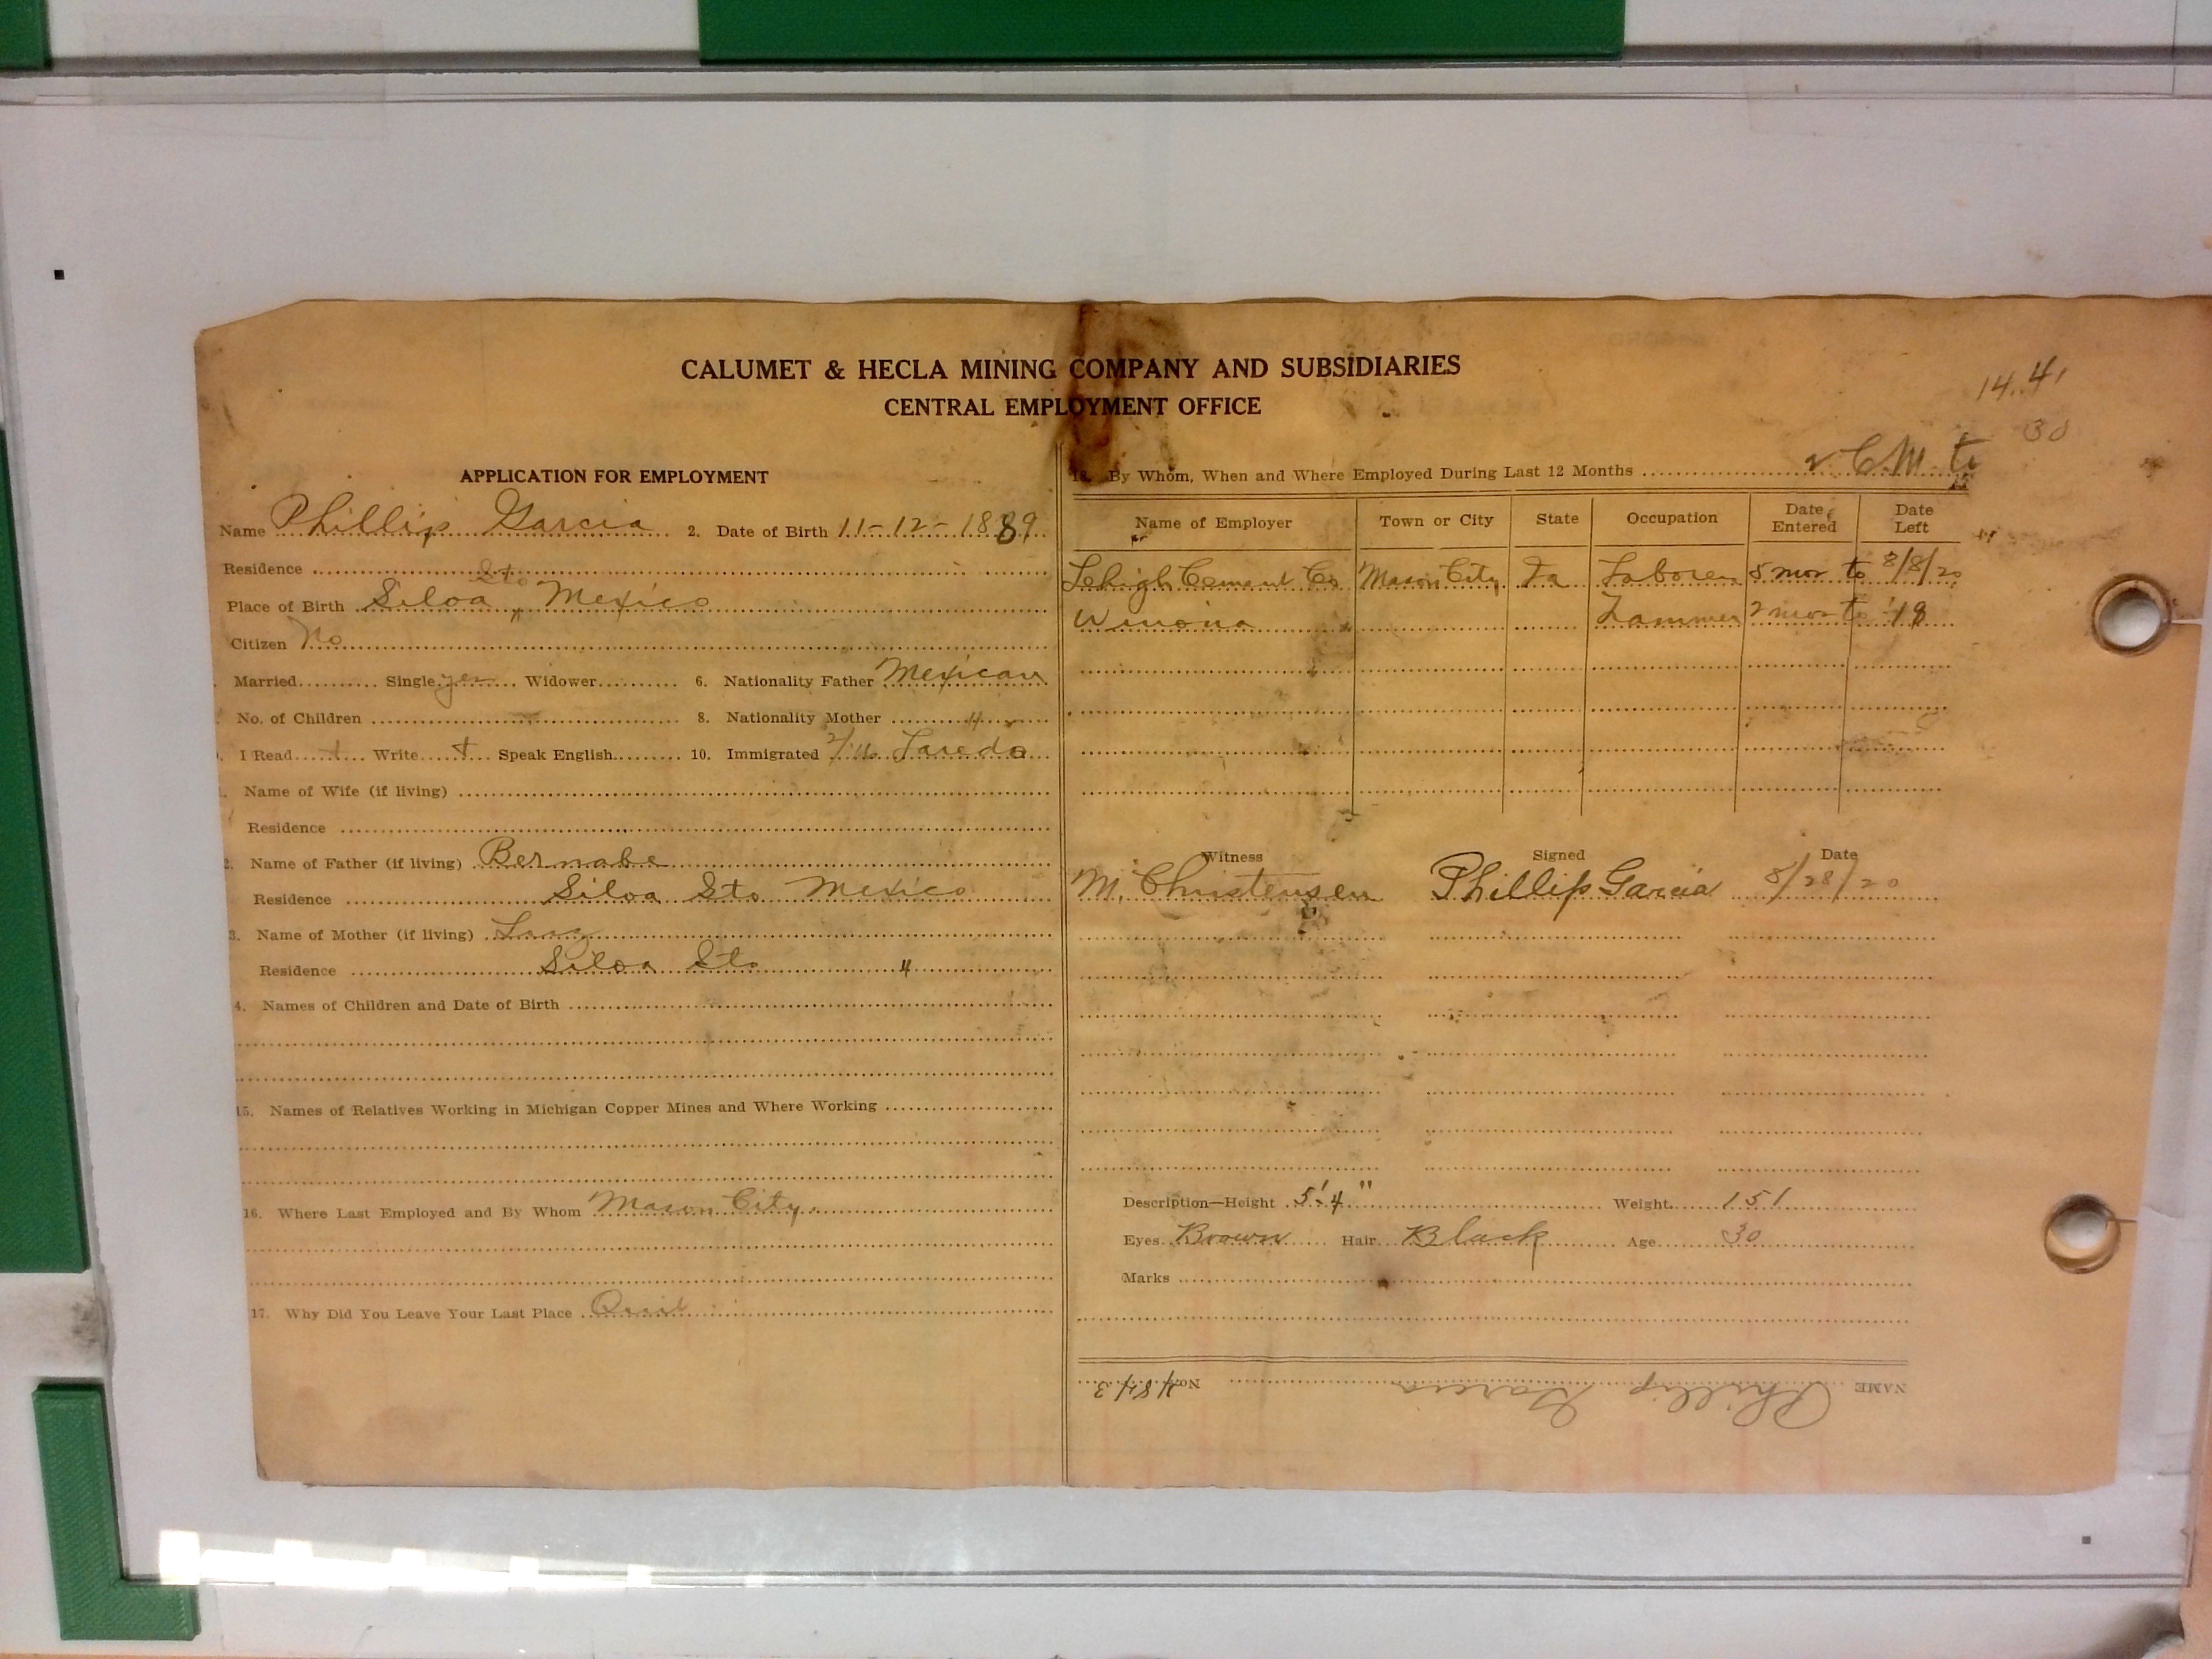 CALUMET & HECLA MINING COMPANY AND SUBSIDIARIES
CENTRAL EMPLOYMENT OFFICE
14.41
30
APPLICATION FOR EMPLOYMENT
Name Phillip Garcia 2. Date of Birth 11-12-1889
Residence
Place of Birth Siloa Gto Mexico
Citizen No
Married Single yes Widower 6. Nationality Father Mexican
No. of Children 8. Nationality Mother "
I Read Write Speak English 10. Immigrated Laredo
Name of Wife (if living)
Residence
2. Name of Father (if living) Bernabe
Residence Siloa Gto Mexico
3. Name of Mother (if living)
Residence Siloa Gto "
4. Names of Children and Date of Birth
15. Names of Relatives Working in Michigan Copper Mines and Where Working
16. Where Last Employed and By Whom Mason City
17. Why Did You Leave Your Last Place
18. By Whom, When and Where Employed During Last 12 Months
Name of Employer Town or City State Occupation Date Entered Date Left
Lehigh Cement Co Mason City Ia Laborer 5 mos to 8/8/20
Winona Trammer 2 mos to '18
Witness Signed Date
M. Christensen Phillip Garcia 8/28/20
Description—Height 5'4" Weight 151
Eyes Brown Hair Black Age 30
Marks
NAME Phillip Garcia No. 4843